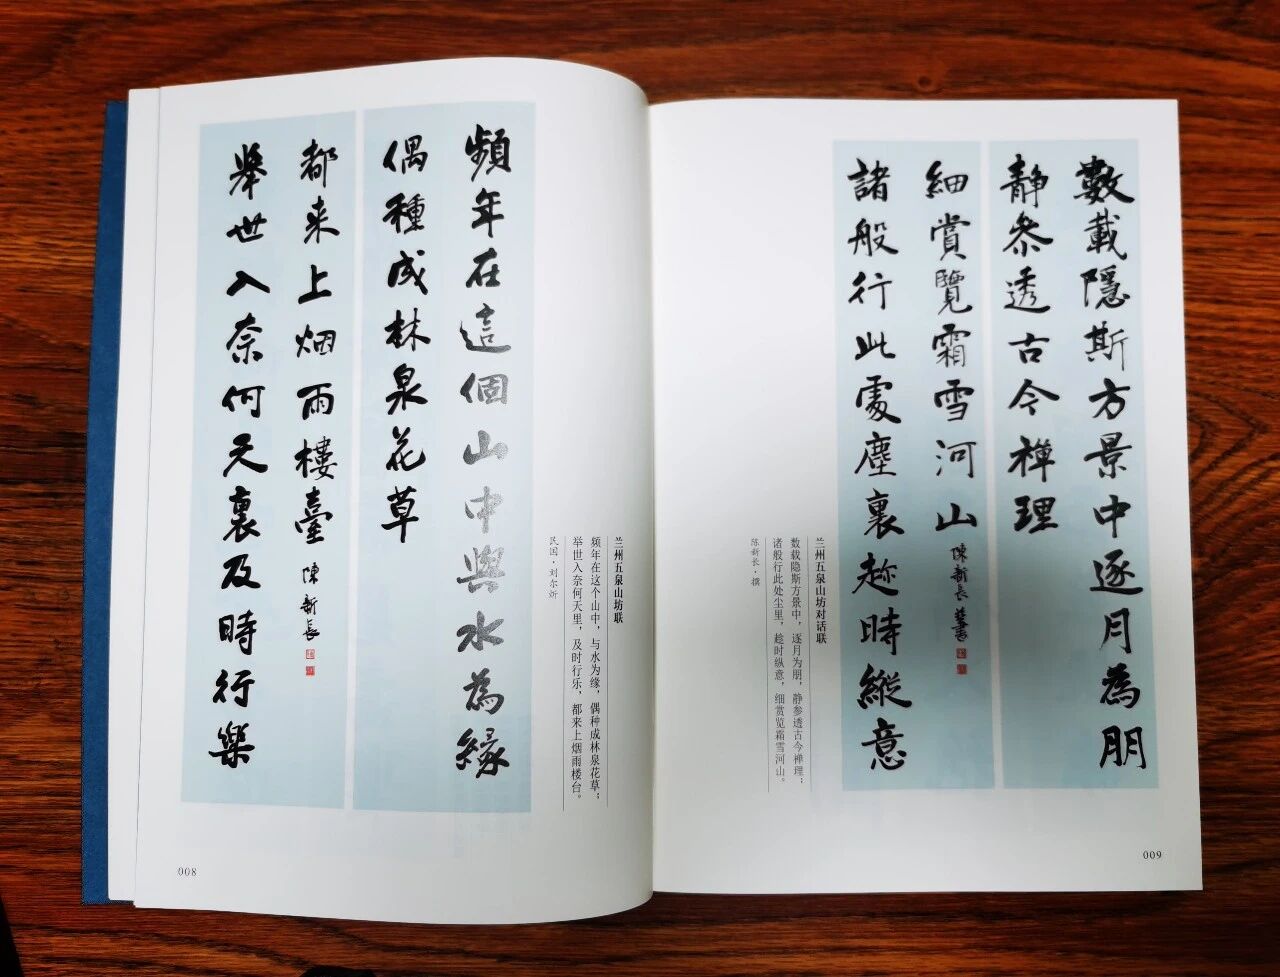 頻年在這個山中與水為緣
偶種成林泉花草
舉世入奈何天裏及時行樂
都来上烟雨樓臺
陳新長
兰州五泉山坊联
频年在这个山中，与水为缘，偶种成林泉花草；
举世入奈何天里，及时行乐，都来上烟雨楼台。
民国·刘尔炘
008
數載隱斯方景中逐月為朋
静参透古今禅理
諸般行此處塵裏趁時縱意
細賞覽霜雪河山
陳新長撰書
兰州五泉山坊对话联
数载隐斯方景中，逐月为朋，静参透古今禅理；
诸般行此处尘里，趁时纵意，细赏览霜雪河山。
陈新长·撰
009